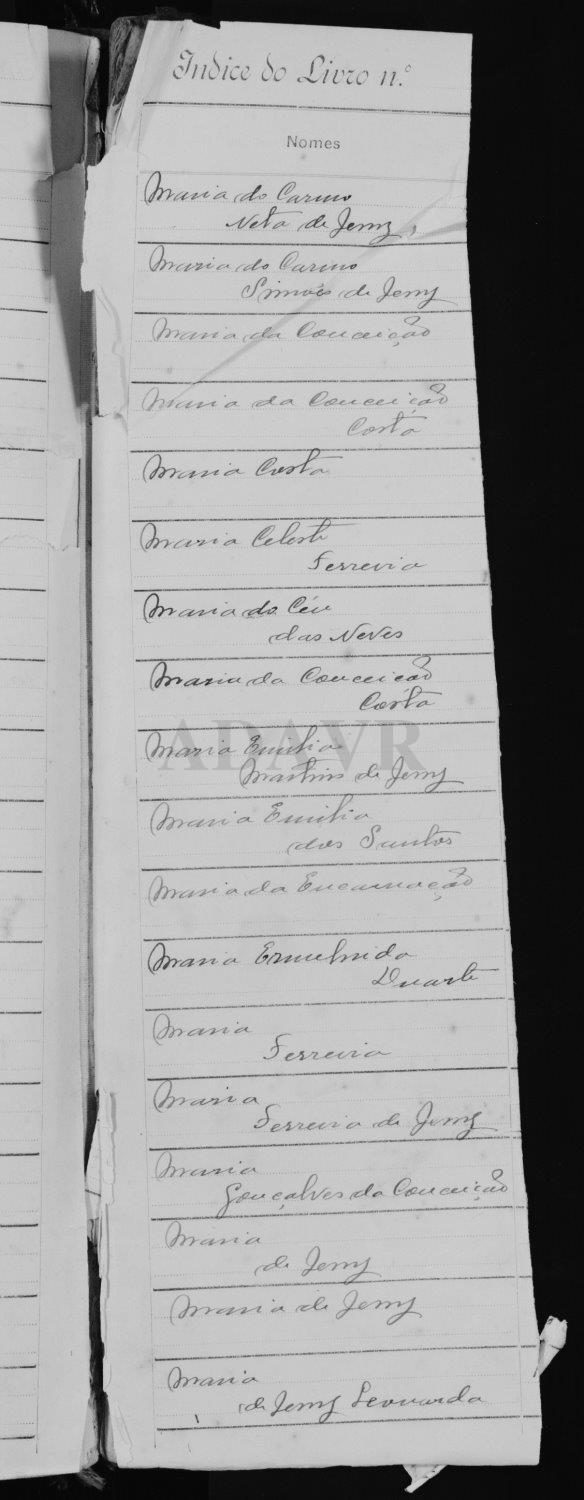 Indice do Livro n.º
Nomes
Maria do Carmo
Neta de Jesus
Maria do Carmo
Simões de Jesus
Maria da Conceição
Maria da Conceição
Costa
Maria Costa
Maria Celeste
Ferreira
Maria do Céu
das Neves
Maria da Conceição
Costa
ADAVR
Maria Emilia
Martins de Jesus
Maria Emilia
dos Santos
Maria da Encarnação
Maria Ermelinda
Duarte
Maria
Ferreira
Maria
Ferreira de Jesus
Maria
Gonçalves da Conceição
Maria
de Jesus
Maria de Jesus
Maria
de Jesus Leonarda